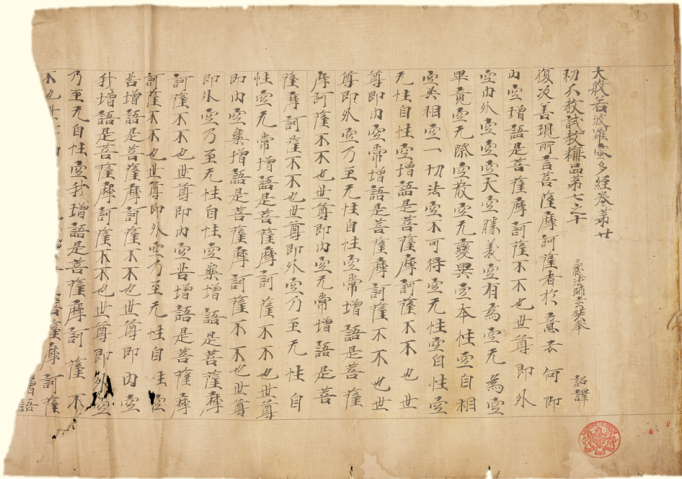 大般若波羅蜜多經卷第廿
初分教誡教授品第七之十
三藏法師玄奘奉 詔譯
復次善現所言菩薩摩訶薩者於意云何即
內空增語是菩薩摩訶薩不不也世尊即外
空內外空空空大空勝義空有為空无為空
畢竟空无際空散空无變異空本性空自相
空共相空一切法空不可得空无性空自性空
无性自性空增語是菩薩摩訶薩不不也世
尊即內空常增語是菩薩摩訶薩不不也世
尊即外空乃至无性自性空常增語是菩薩
摩訶薩不不也世尊即內空无常增語是菩
薩摩訶薩不不也世尊即外空乃至无性自
性空无常增語是菩薩摩訶薩不不也世尊
即內空樂增語是菩薩摩訶薩不不也世尊
即外空乃至无性自性空樂增語是菩薩摩
訶薩不不也世尊即內空苦增語是菩薩摩
訶薩不不也世尊即外空乃至无性自性空
苦增語是菩薩摩訶薩不不也世尊即內空
我增語是菩薩摩訶薩不不也世尊即外空
乃至无自性空我增語是菩薩摩訶薩不
不也世 菩薩摩訶薩
增語